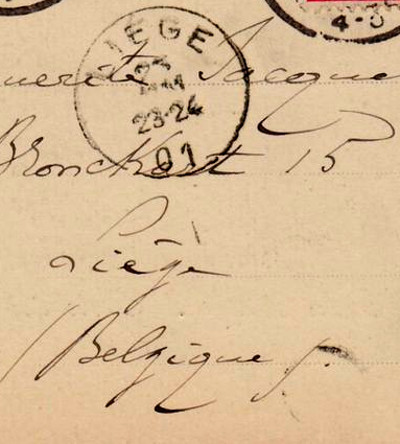 LIEGE
23
23-24
01
4-5
uerite Jacque
Bronckart 15
Liége
(Belgique)